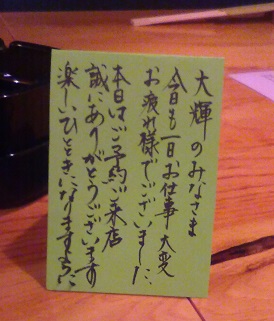 大輝のみなさま
今日も一日お仕事大変
お疲れ様でございました
本日はご予約ご来店
誠にありがとうございます
楽しいひとときになりますように